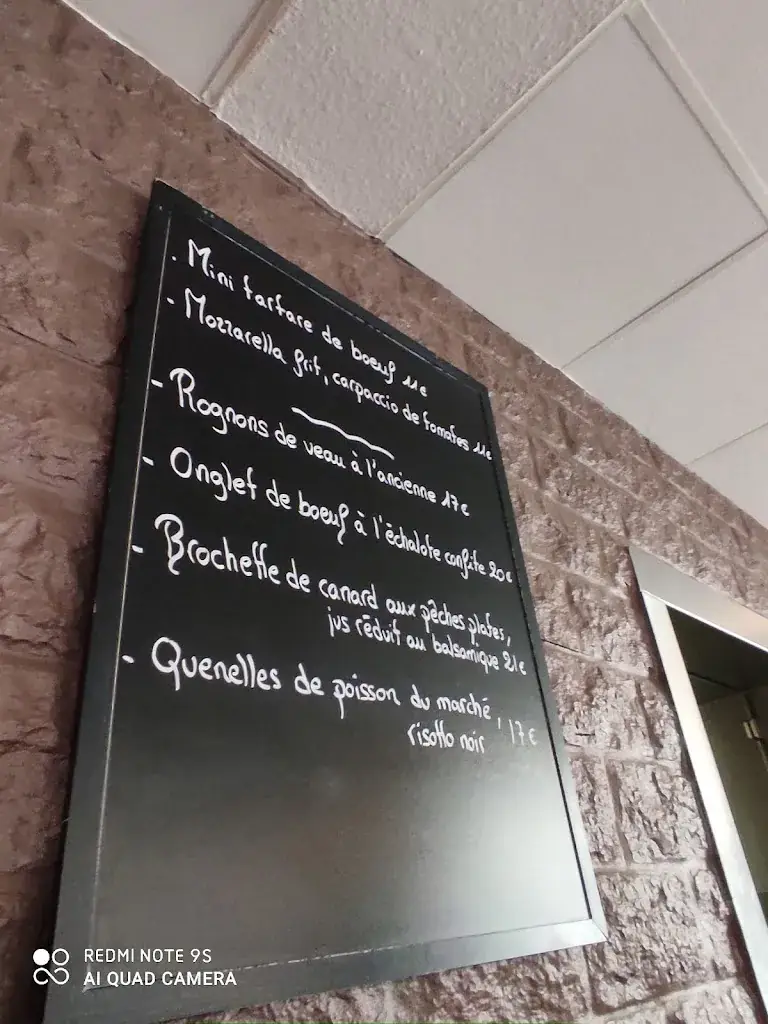 . Mini tartare de boeuf 11€
- Mozzarella frit, carpaccio de tomates 11€
- Rognons de veau à l'ancienne 17€
- Onglet de boeuf à l'échalote confite 20€
- Brochette de canard aux pêches plates,
jus réduit au balsamique 21€
- Quenelles de poisson du marché,
risotto noir 17€
REDMI NOTE 9S
AI QUAD CAMERA